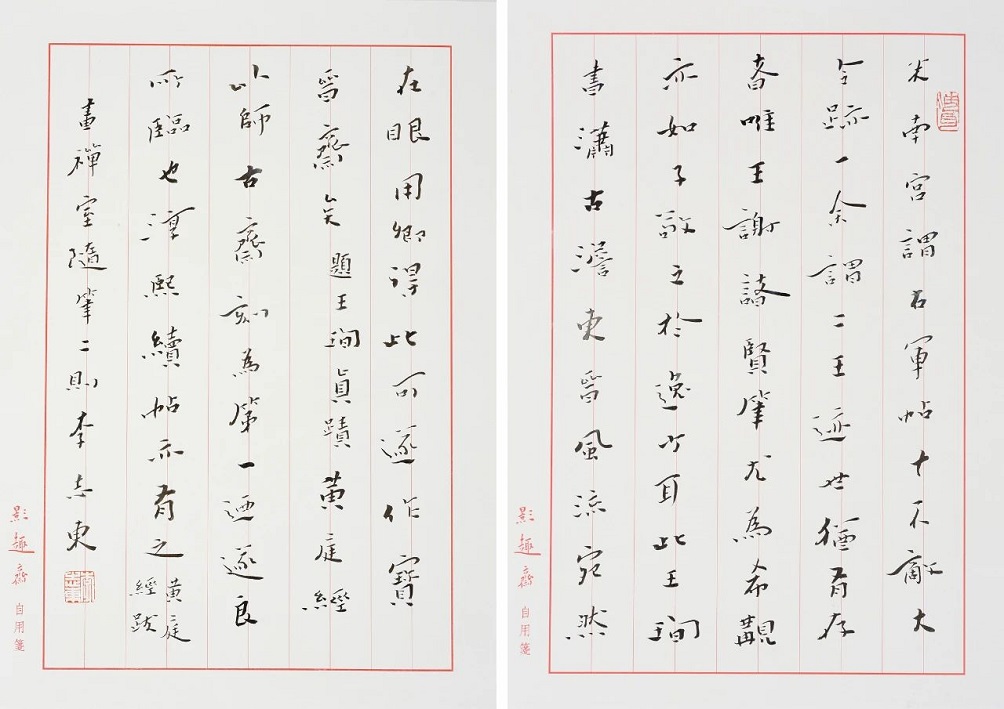 米南宮謂右軍帖十不敵大
令跡一余謂二王迹世猶有存
者唯王謝諸賢筆尤為希覯
亦如子敬之於逸少耳此王珣
書瀟古澹東晉風流宛然
影趣齋自用箋
在眼用卿得此可遂作寶
晉齋矣 題王珣眞蹟 黃庭經
以師古齋刻為第一迺遂良
所臨也淳熙續帖亦有之 黃庭經跋
畫禪室隨筆二則李志東
影趣齋自用箋